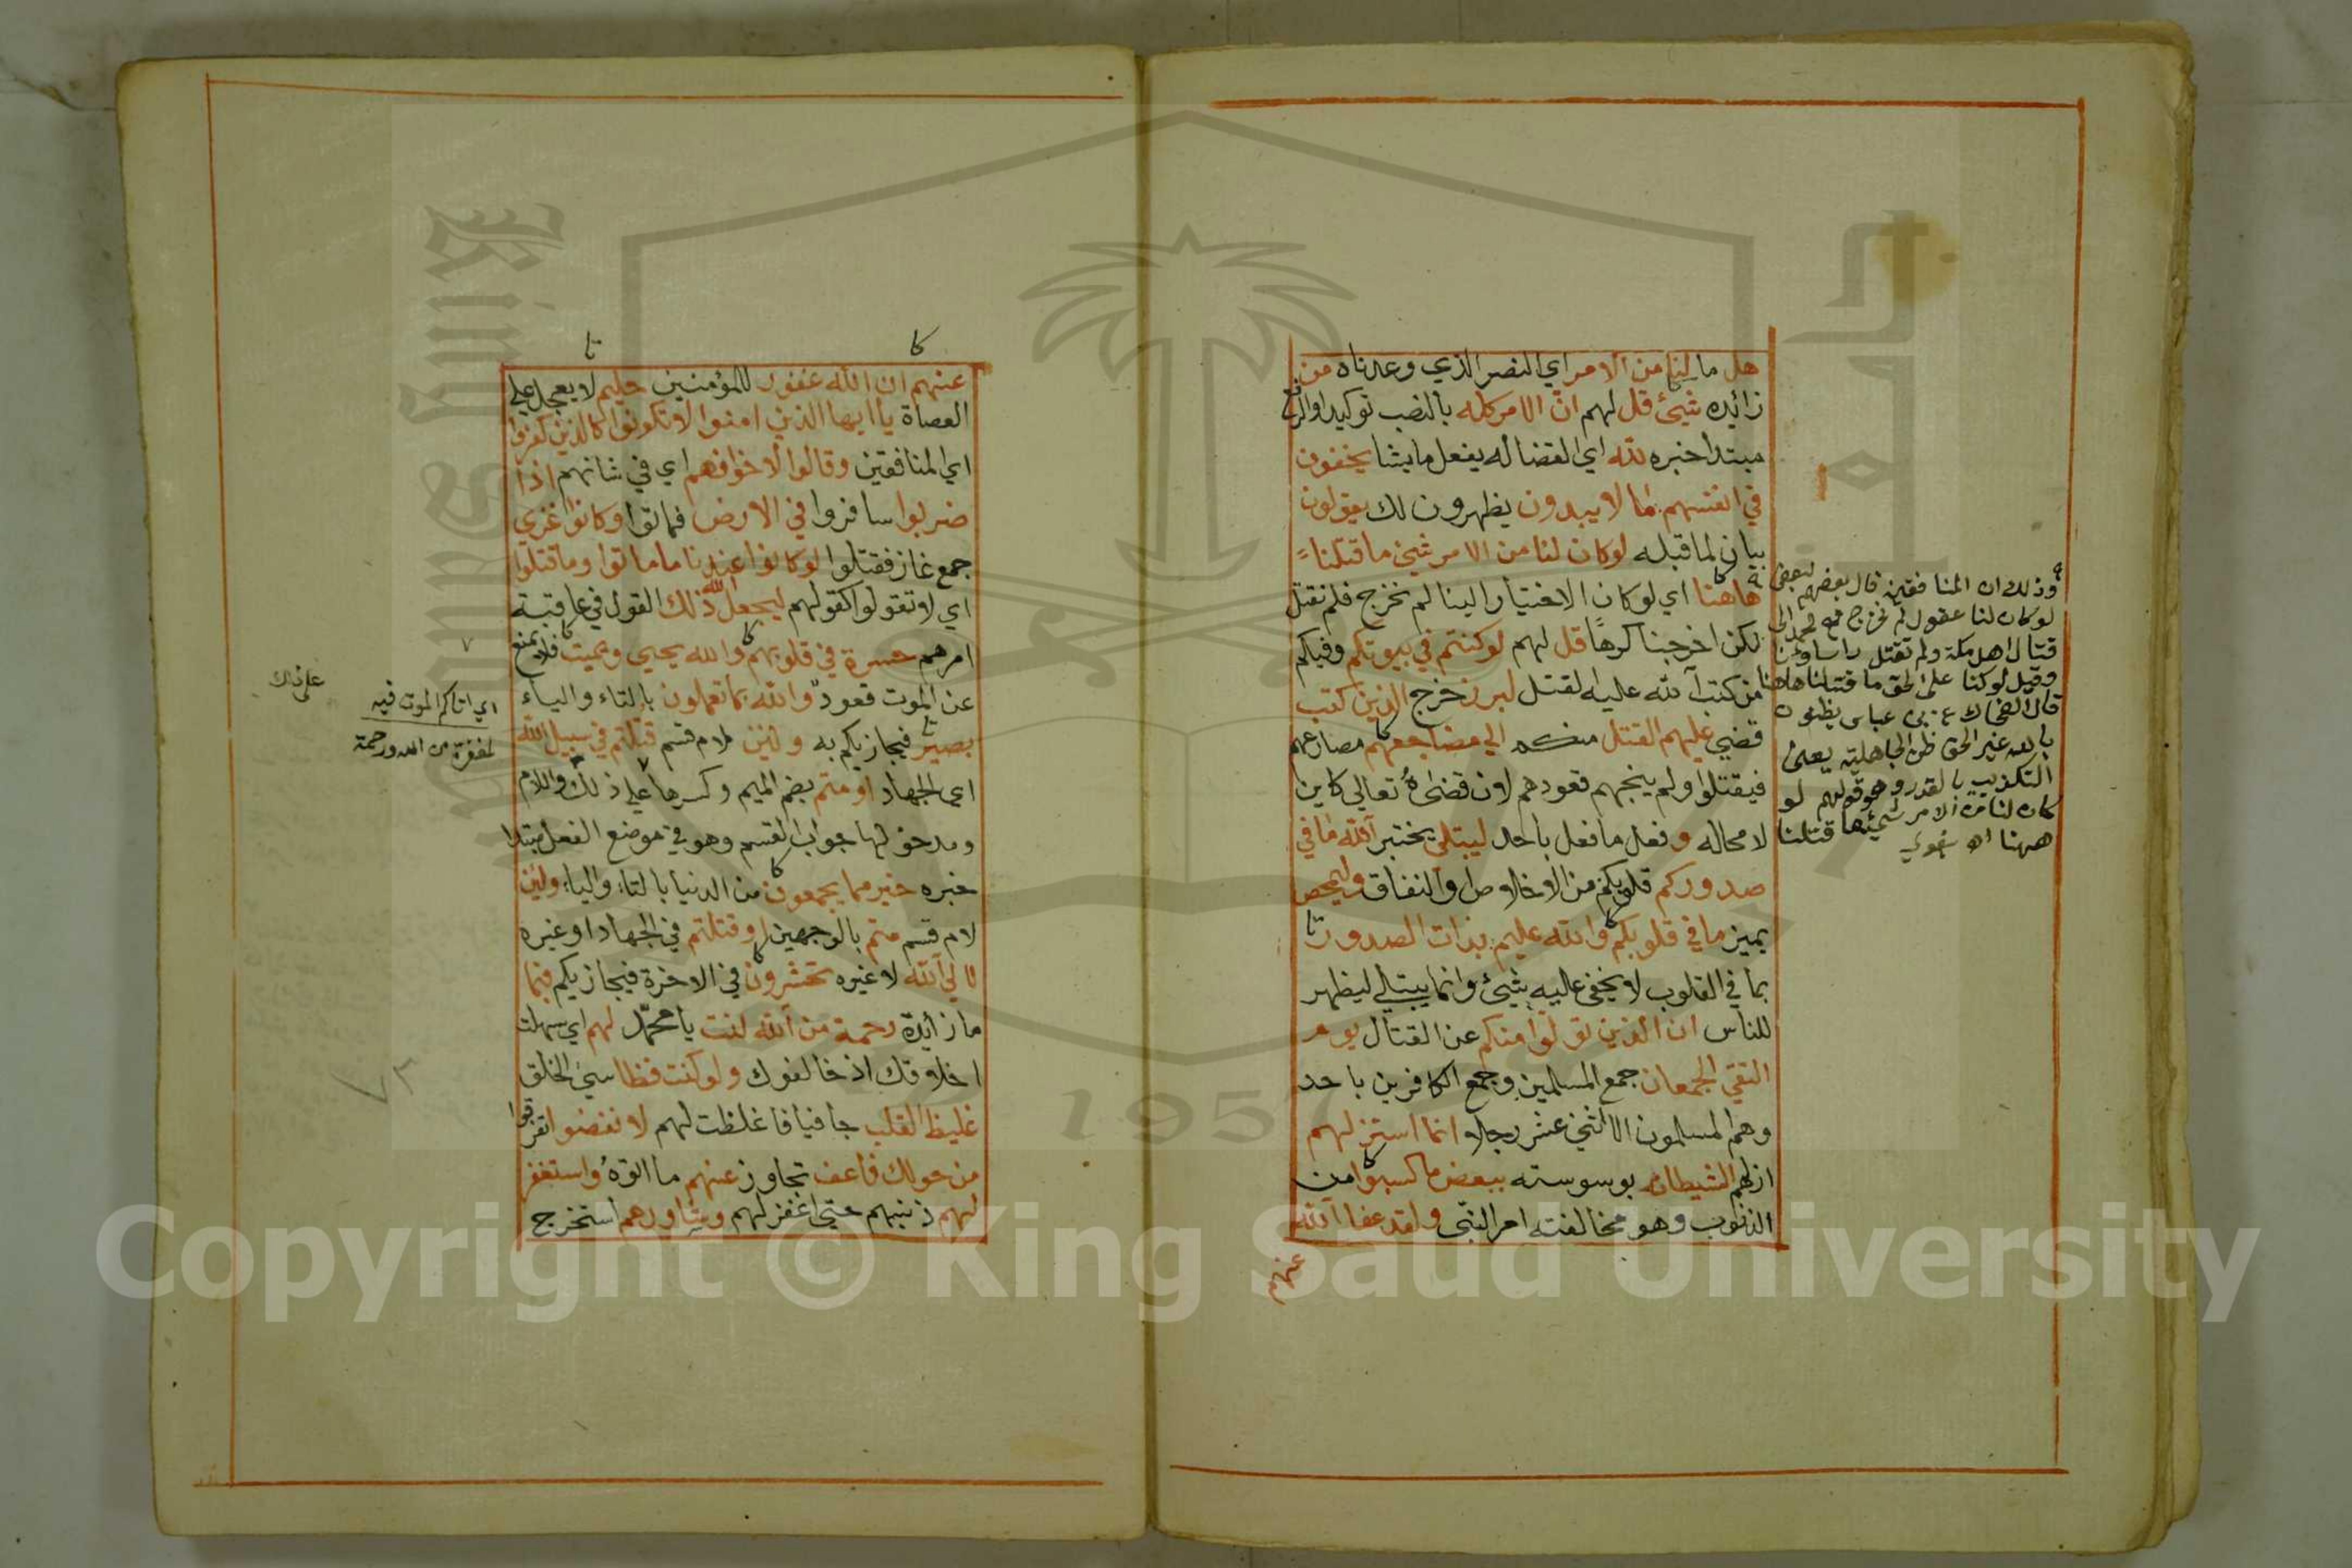 هل ما لنا من الامر اي النصر الذي وعدناه من
زائده شيئ قل لهم ان الامر كله بالنصب توكيدا والرفع
مبتدا خبره لله اي القضا له يفعل ما يشا يخفون
في انفسهم ما لا يبدون يظهرون لك يقولون
بيان لما قبله لو كان لنا من الامر شيئ ما قتلنا
هاهنا اي لو كان الاختيار الينا لم نخرج فلم نقتل
لكن اخرجنا كرها قل لهم لو كنتم في بيوتكم وفيكم
من كتب الله عليه القتل لبرز خرج الذين كتب
قضي عليهم القتل منكم الي مضاجعهم مصارعهم
فيقتلوا ولم ينجهم قعودهم لان قضاءه تعالي كاين
لا محاله و فعل ما فعل باحد ليبتلي يختبر الله ما في
صدوركم قلوبكم من الاخلاص او النفاق وليمحص
يميز ما في قلوبكم والله عليم بذات الصدور
بما في القلوب لا يخفى عليه شيئ وانما يبتلي ليظهر
للناس ان الذين تولوا منكم عن القتال يوم
التقي الجمعان جمع المسلمين وجمع الكافرين باحد
وهم المسلمون الا اثني عشر رجلا انما استزلهم
ازلهم الشيطان بوسوسته ببعض ما كسبوا من
الذنوب وهو مخالفته امر النبي ولقد عفا الله
عنهم
وذلك ان المنافقين قال بعضهم لبعض
لو كان لنا عقول لم نخرج مع محمد الى
قتال اهل مكة ولم تقتل رؤساؤنا
وقيل لو كنا على الحق ما قتلنا هاهنا
قال الضحاك عن ابن عباس يظنون
بالله غير الحق ظن الجاهلية يعني
التكذيب بالقدر وهو قولهم لو
كان لنا من الامر شيئ ما قتلنا
ههنا اه بغوي
كا
تا
عنهم ان الله غفور للمؤمنين حليم لا يعجل علي
العصاة يا ايها الذين امنوا لا تكونوا كالذين كفروا
اي المنافقين وقالوا لاخوانهم اي في شانهم اذا
ضربوا سافروا في الارض فماتوا او كانوا غزي
جمع غاز فقتلوا لو كانوا عندنا ما ماتوا وما قتلوا
اي لا تقولوا كقولهم ليجعل الله ذلك القول في عاقبة
امرهم حسرة في قلوبهم والله يحيي ويميت فلا يمنع
عن الموت قعود والله بما تعملون بالتاء والياء
بصير فيجازيكم به ولئن لام قسم قتلتم في سبيل الله
اي الجهاد او متم بضم الميم وكسرها علي ذلك واللام
ومدخولها جواب القسم وهو في موضع الفعل مبتدا
خبره خير مما يجمعون من الدنيا بالتاء والياء ولئن
لام قسم متم بالوجهين او قتلتم في الجهاد او غيره
لالي الله لا غيره تحشرون في الاخرة فيجازيكم فبما
ما زائدة رحمة من الله لنت يا محمد لهم اي سهلت
اخلاقك اذ خالفوك ولو كنت فظا سيئ الخلق
غليظ القلب جافيا فاغلظت لهم لانفضوا تفرقوا
من حولك فاعف تجاوز عنهم ما اتوه واستغفر
لهم ذنبهم حتي اغفر لهم وشاورهم استخرج
اي اتاكم الموت فيه
لمغفرة من الله ورحمة
على ذلك
٧٣
1957
Copyright © King Saud University